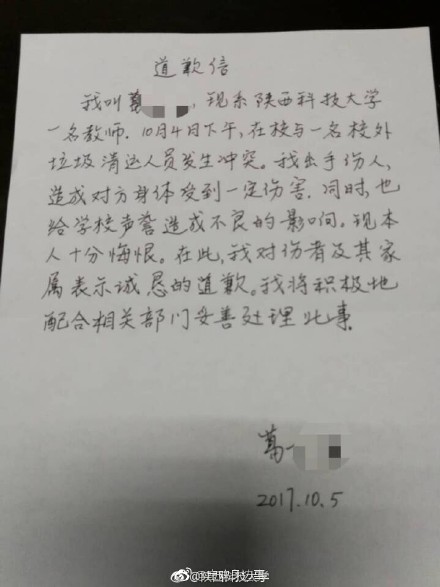 道歉信
我叫葛，现系陕西科技大学
一名教师．10月4日下午，在校与一名校外
垃圾清运人员发生冲突。我出手伤人，
造成对方身体受到一定伤害．同时，也
给学校声誉造成不良的影响。现本
人十分悔恨。在此，我对伤者及其家
属表示诚恳的道歉。我将积极地
配合相关部门妥善处理此事．
葛
2017.10.5